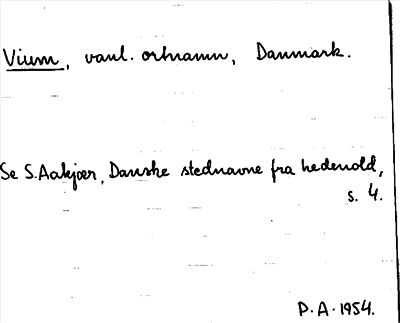 Vium, vanl. ortnamn, Danmark.
Se S. Aakjær, Danske stednavne fra hedenold,
s. 4.
P.A. 1954.